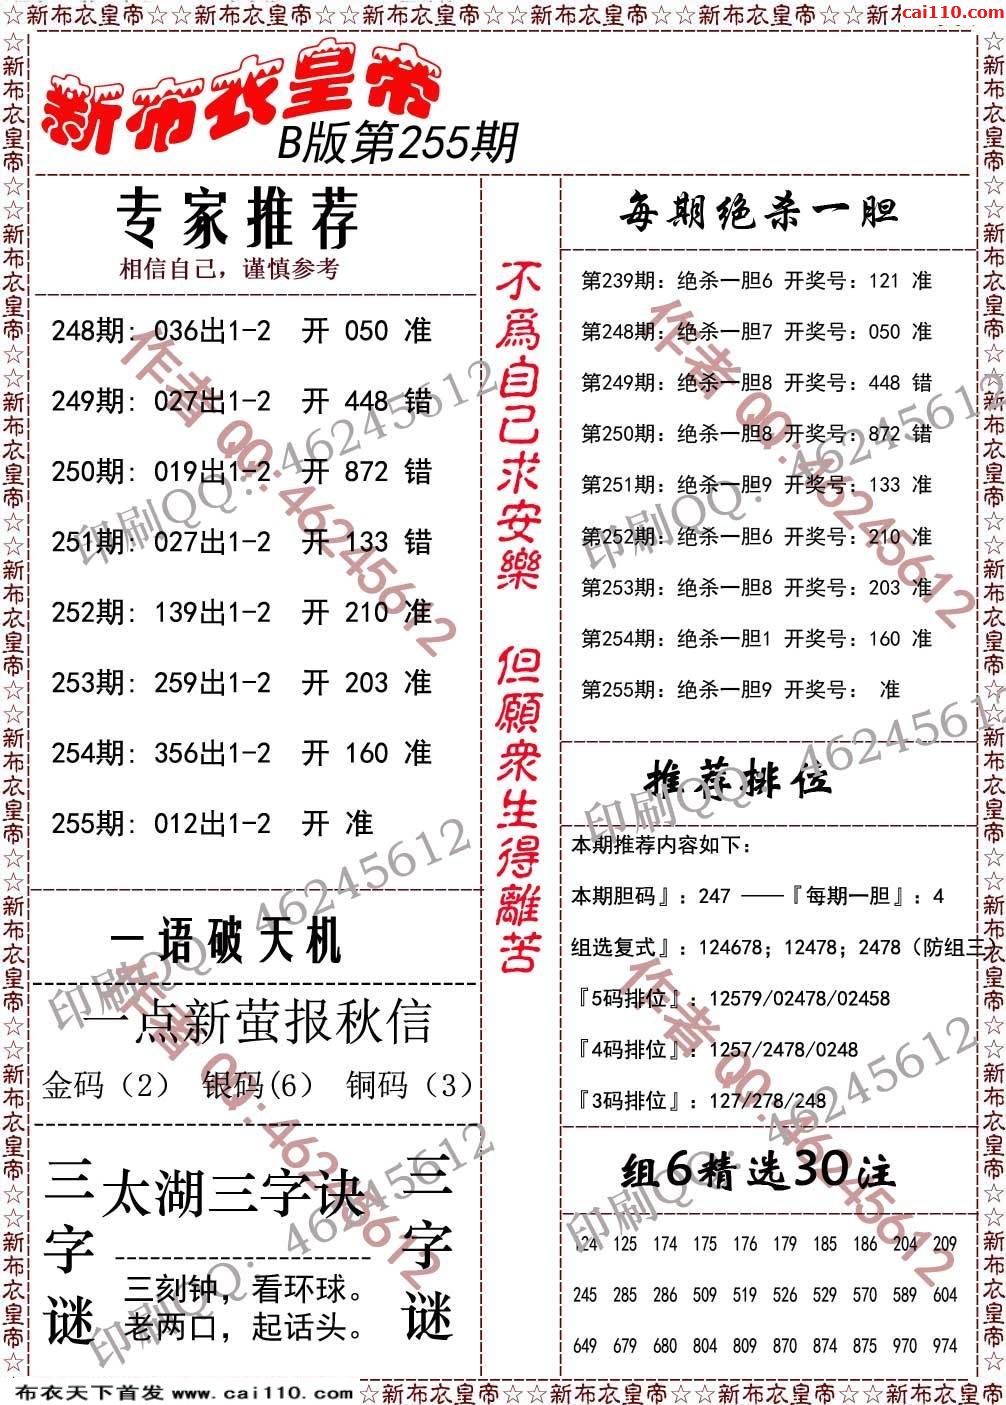 ☆新布衣皇帝☆☆新布衣皇帝☆☆新布衣皇帝☆☆新布衣皇帝☆☆新布衣皇帝☆☆新布
cai110.com
新布衣皇帝
B版第255期
专家推荐
相信自己，谨慎参考
248期：036出1-2 开 050 准
249期：027出1-2 开 448 错
250期：019出1-2 开 872 错
251期：027出1-2 开 133 错
252期：139出1-2 开 210 准
253期：259出1-2 开 203 准
254期：356出1-2 开 160 准
255期：012出1-2 开 准
一语破天机
一点新萤报秋信
金码（2） 银码(6） 铜码（3）
三字谜
太湖三字诀
三刻钟，看环球。
老两口，起话头。
三字谜
不為自己求安樂 但願衆生得離苦
每期绝杀一胆
第239期：绝杀一胆6 开奖号：121 准
第248期：绝杀一胆7 开奖号：050 准
第249期：绝杀一胆8 开奖号：448 错
第250期：绝杀一胆8 开奖号：872 错
第251期：绝杀一胆9 开奖号：133 准
第252期：绝杀一胆6 开奖号：210 准
第253期：绝杀一胆8 开奖号：203 准
第254期：绝杀一胆1 开奖号：160 准
第255期：绝杀一胆9 开奖号： 准
推荐排位
本期推荐内容如下：
本期胆码』：247 ——『每期一胆』：4
组选复式』：124678；12478；2478（防组三）
『5码排位』：12579/02478/02458
『4码排位』：1257/2478/0248
『3码排位』：127/278/248
组6精选30注
124 125 174 175 176 179 185 186 204 209
245 285 286 509 519 526 529 570 589 604
649 679 680 804 809 870 874 875 970 974
作者 QQ：46245612
印刷QQ：46245612
作者 QQ：46245612
印刷QQ：46245612
印刷QQ：46245612
印刷QQ：46245612
作者 QQ：46245612
印刷QQ：46245612
作者 QQ：46245612
印刷QQ：46245612
☆新布衣皇帝☆☆新布衣皇帝☆☆新布衣皇帝☆☆新布衣皇帝☆☆新布衣皇帝☆☆新布衣皇帝☆☆新布衣皇帝☆☆新布衣皇帝☆
☆新布衣皇帝☆☆新布衣皇帝☆☆新布衣皇帝☆☆新布衣皇帝☆☆新布衣皇帝☆☆新布衣皇帝☆☆新布衣皇帝☆☆新布衣皇帝☆
布衣天下首发 www.cai110.com
☆新布衣皇帝☆☆新布衣皇帝☆☆新布衣皇帝☆☆新布衣皇帝☆